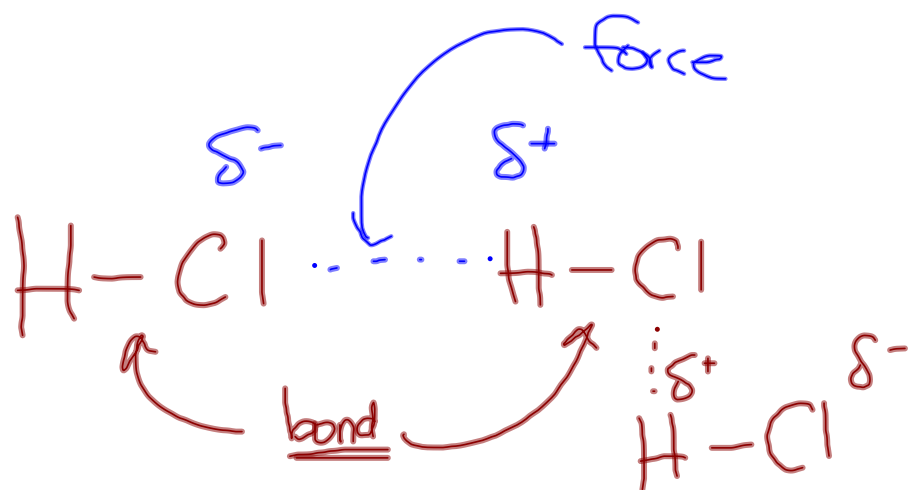 force
δ- δ+
H-Cl H-Cl
δ+ δ-
bond
H-Cl